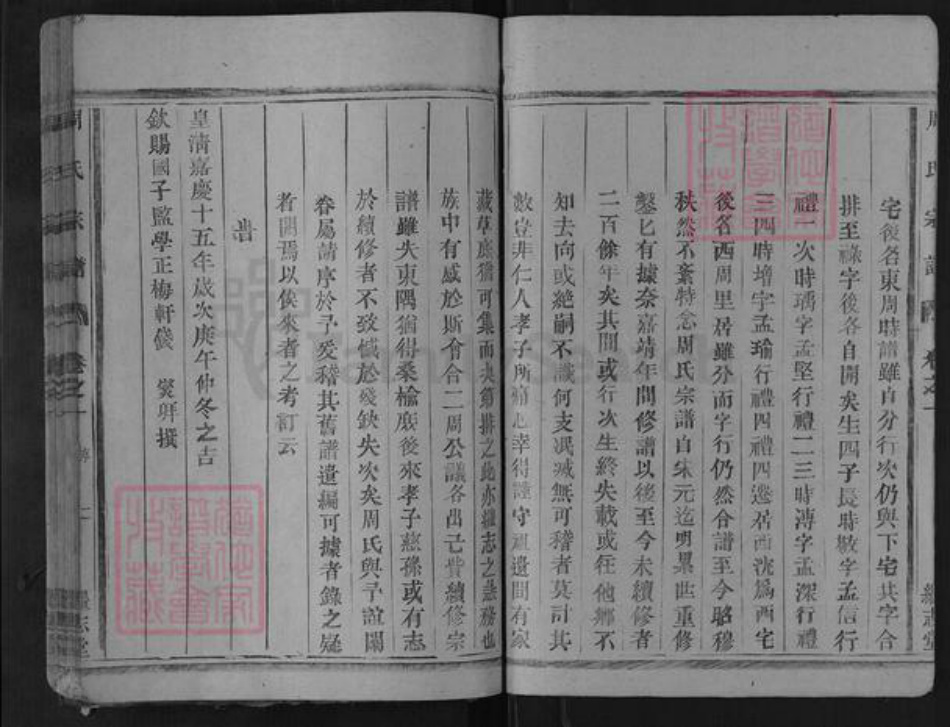 周氏宗譜 卷之一 繼志堂
宅後各東周時譜雖直分行次仍與下宅共字合
排至祿字後各自開矣生四子長時敏字孟信行
禮一次時瑀字孟堅行禮二三時溥字孟深行禮
三四時增字孟瑜行禮四禮四遷居西沈為西宅
後名西周里居雖分而字行仍然合譜至今昭穆
秩然不紊特念周氏宗譜自宋元迄明累世重修
鑿匕有據奈嘉靖年間修譜以後至今未續修者
二百餘年矣其間或行次生終失載或往他鄉不
知去向或絶嗣不識何支泯滅無可稽者莫計其
數豈非仁人孝子所痛心幸得謹守遺間有家
藏草底猶可集而次第排之此亦繼志之急務也
族中有感於斯會合二周公議各出己貲續修宗
譜雖失東隅猶得桑榆庶後來孝子慈孫或有志
於續修者不致憾於殘缺失次矣周氏與予誼關
眷屬請序於予爰稽其舊譜遺編可據者錄之疑
者闕焉以俟來者之考訂云
旹
皇清嘉慶十五年歲次庚午仲冬之吉
欽賜國子監學正梅軒 撰
周氏宗譜 卷之一 二 繼志堂